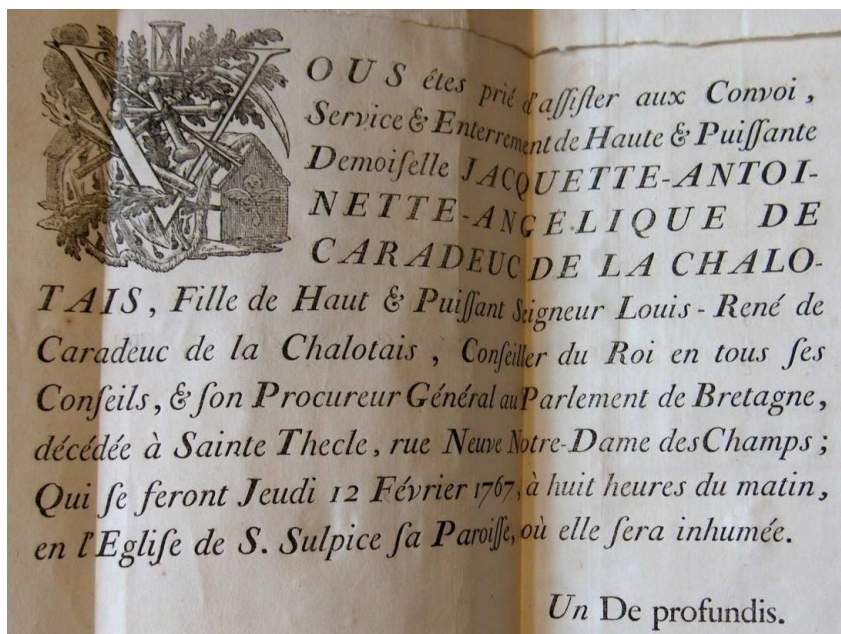 VOUS êtes prié d'aſſiſter aux Convoi,
Service & Enterrement de Haute & Puiſſante
Demoiſelle JACQUETTE-ANTOI-
NETTE-ANGÉLIQUE DE
CARADEUC DE LA CHALO-
TAIS, Fille de Haut & Puiſſant Seigneur Louis-René de
Caradeuc de la Chalotais, Conſeiller du Roi en tous ſes
Conſeils, & ſon Procureur Général au Parlement de Bretagne,
décédée à Sainte Thecle, rue Neuve Notre-Dame des Champs;
Qui ſe feront Jeudi 12 Février 1767, à huit heures du matin,
en l'Egliſe de S. Sulpice ſa Paroiſſe, où elle ſera inhumée.
Un De profundis.